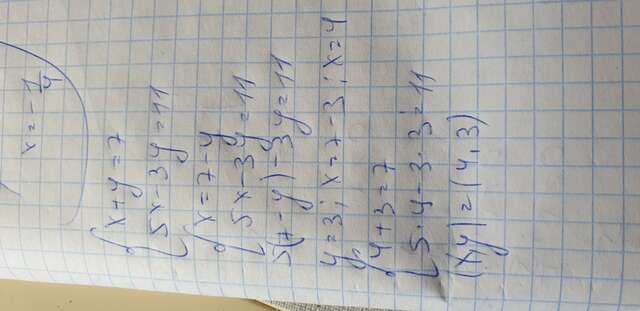 x = - 1/4
{ x+y=7
5x-3y=11
{ x=7-y
5x-3y=11
5(7-y)-3y=11
y=3; x=7-3; x=4
{ 4+3=7
5·4-3·3=11
(x,y)=(4,3)